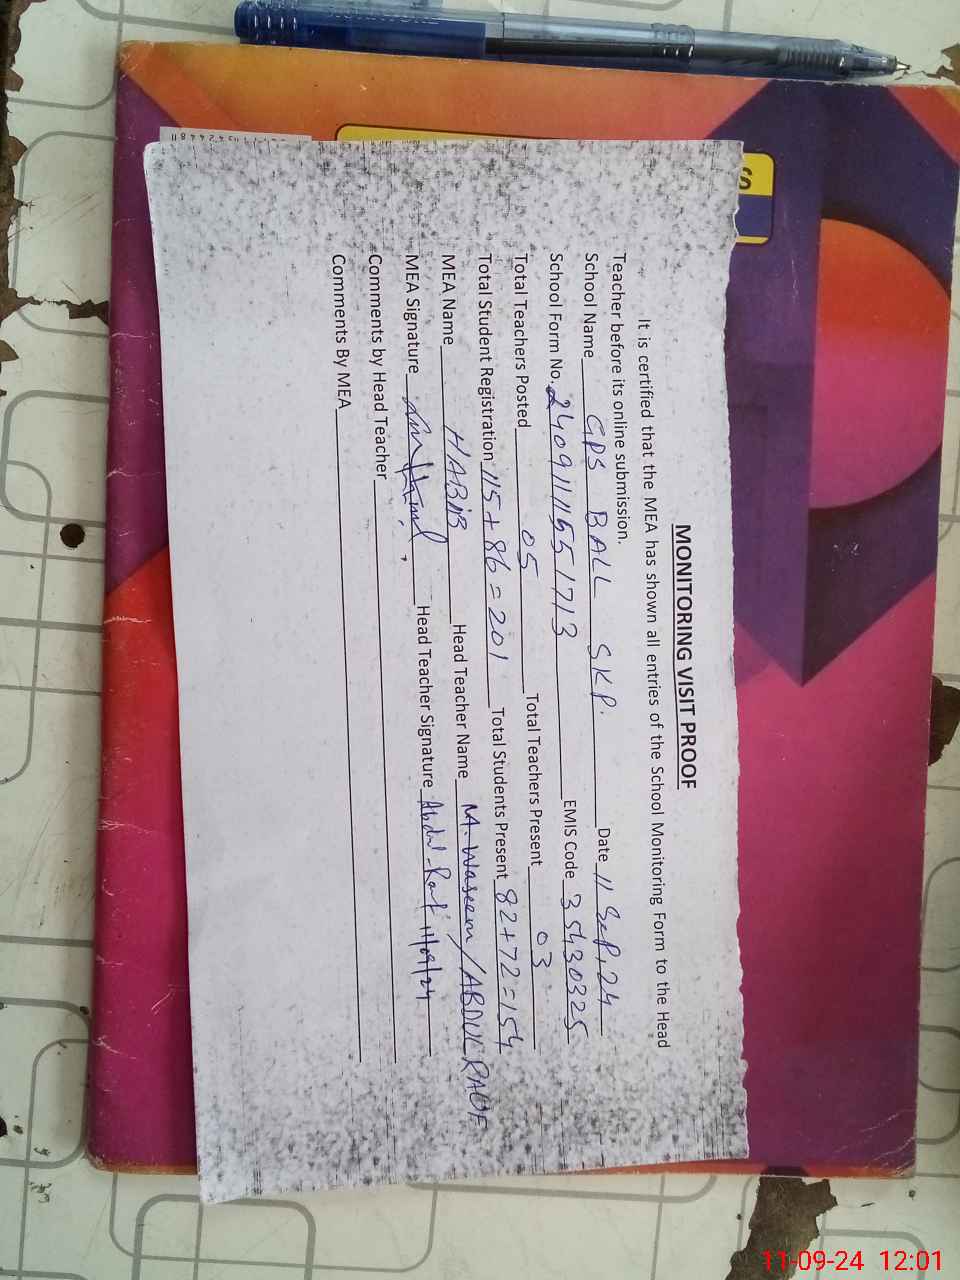 MONITORING VISIT PROOF
It is certified that the MEA has shown all entries of the School Monitoring Form to the Head
Teacher before its online submission.
School Name GPS BALL SKP. Date 11 SeP, 24
School Form No. 2409111551713 EMIS Code 35430325
Total Teachers Posted 05 Total Teachers Present 03
Total Student Registration 115+86=201 Total Students Present 82+72=154
MEA Name HABIB Head Teacher Name M. Waseem/ABDUL RAOF
MEA Signature Head Teacher Signature Abdul Raof 11/09/24
Comments by Head Teacher
Comments By MEA
11-09-24 12:01